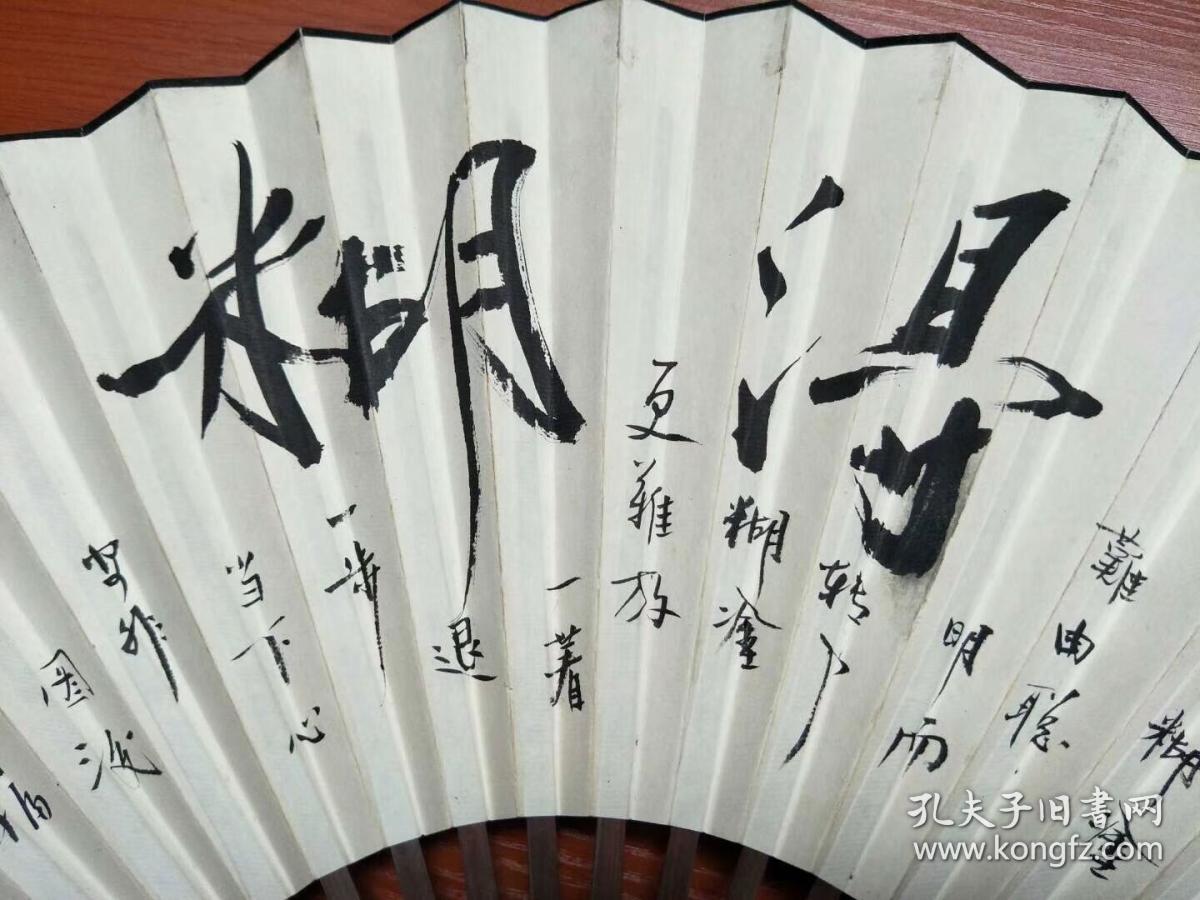 得糊
糊塗
難由聪
明而
转入
糊塗
更難放
一着
退
一步
当下心
安非
圖
福
孔夫子旧書网
www.kongfz.com